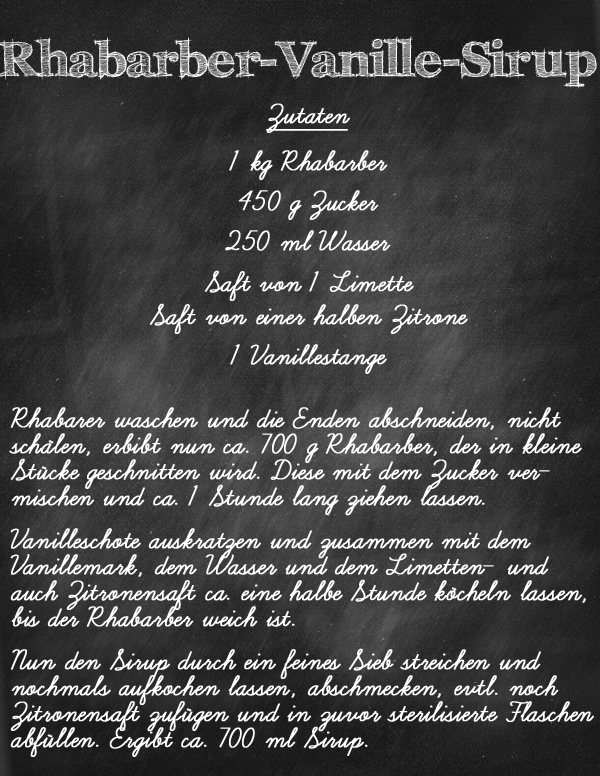 Rhabarber-Vanille-Sirup
Zutaten
1 kg Rhabarber
450 g Zucker
250 ml Wasser
Saft von 1 Limette
Saft von einer halben Zitrone
1 Vanillestange
Rhabarer waschen und die Enden abschneiden, nicht
schälen, erbibt nun ca. 700 g Rhabarber, der in kleine
Stücke geschnitten wird. Diese mit dem Zucker ver-
mischen und ca. 1 Stunde lang ziehen lassen.
Vanilleschote auskratzen und zusammen mit dem
Vanillemark, dem Wasser und dem Limetten- und
auch Zitronensaft ca. eine halbe Stunde köcheln lassen,
bis der Rhabarber weich ist.
Nun den Sirup durch ein feines Sieb streichen und
nochmals aufkochen lassen, abschmecken, evtl. noch
Zitronensaft zufügen und in zuvor sterilisierte Flaschen
abfüllen. Ergibt ca. 700 ml Sirup.